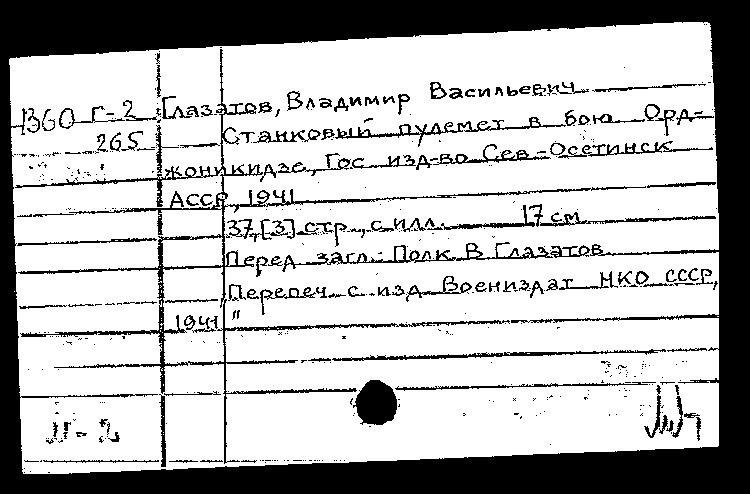 В60 г-2 Глазатов, Владимир Васильевич
265 Станковый пулемет в бою. Орд-
жоникидзе, Гос. изд-во Сев.-Осетинск
АССР, 1941
37,[3] стр., с илл. 17 см
Перед загл.: Полк. В. Глазатов
"Перепеч. с изд. Воениздат НКО СССР,
1941 "